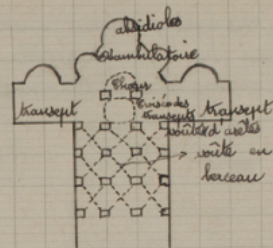 absidioles
Déambulatoire
Choeur
transept
Croisée des
transepts
transept
voûtes d'arêtes
voûte en
berceau